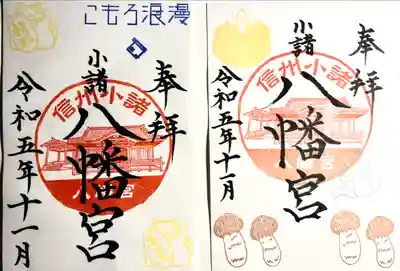 こもろ浪漫
奉拝
小諸
八幡宮
信州小諸
宮
令和五年十一月
奉拝
小諸
八幡宮
信州小諸
宮
令和五年十一月